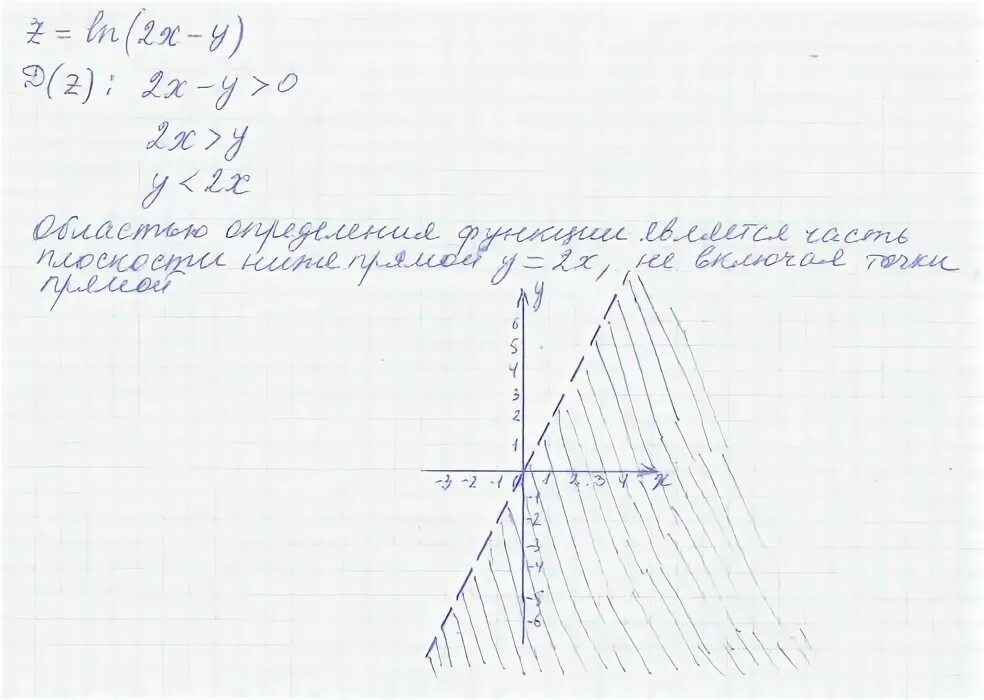 z = ln(2x-y)
D(z): 2x-y>0
2x>y
y<2x
Областью определения функции является часть
плоскости ниже прямой y=2x, не включая точки
прямой
y
6
5
4
3
2
1
-3 -2 -1 0 1 2 3 4 x
-1
-2
-3
-4
-5
-6